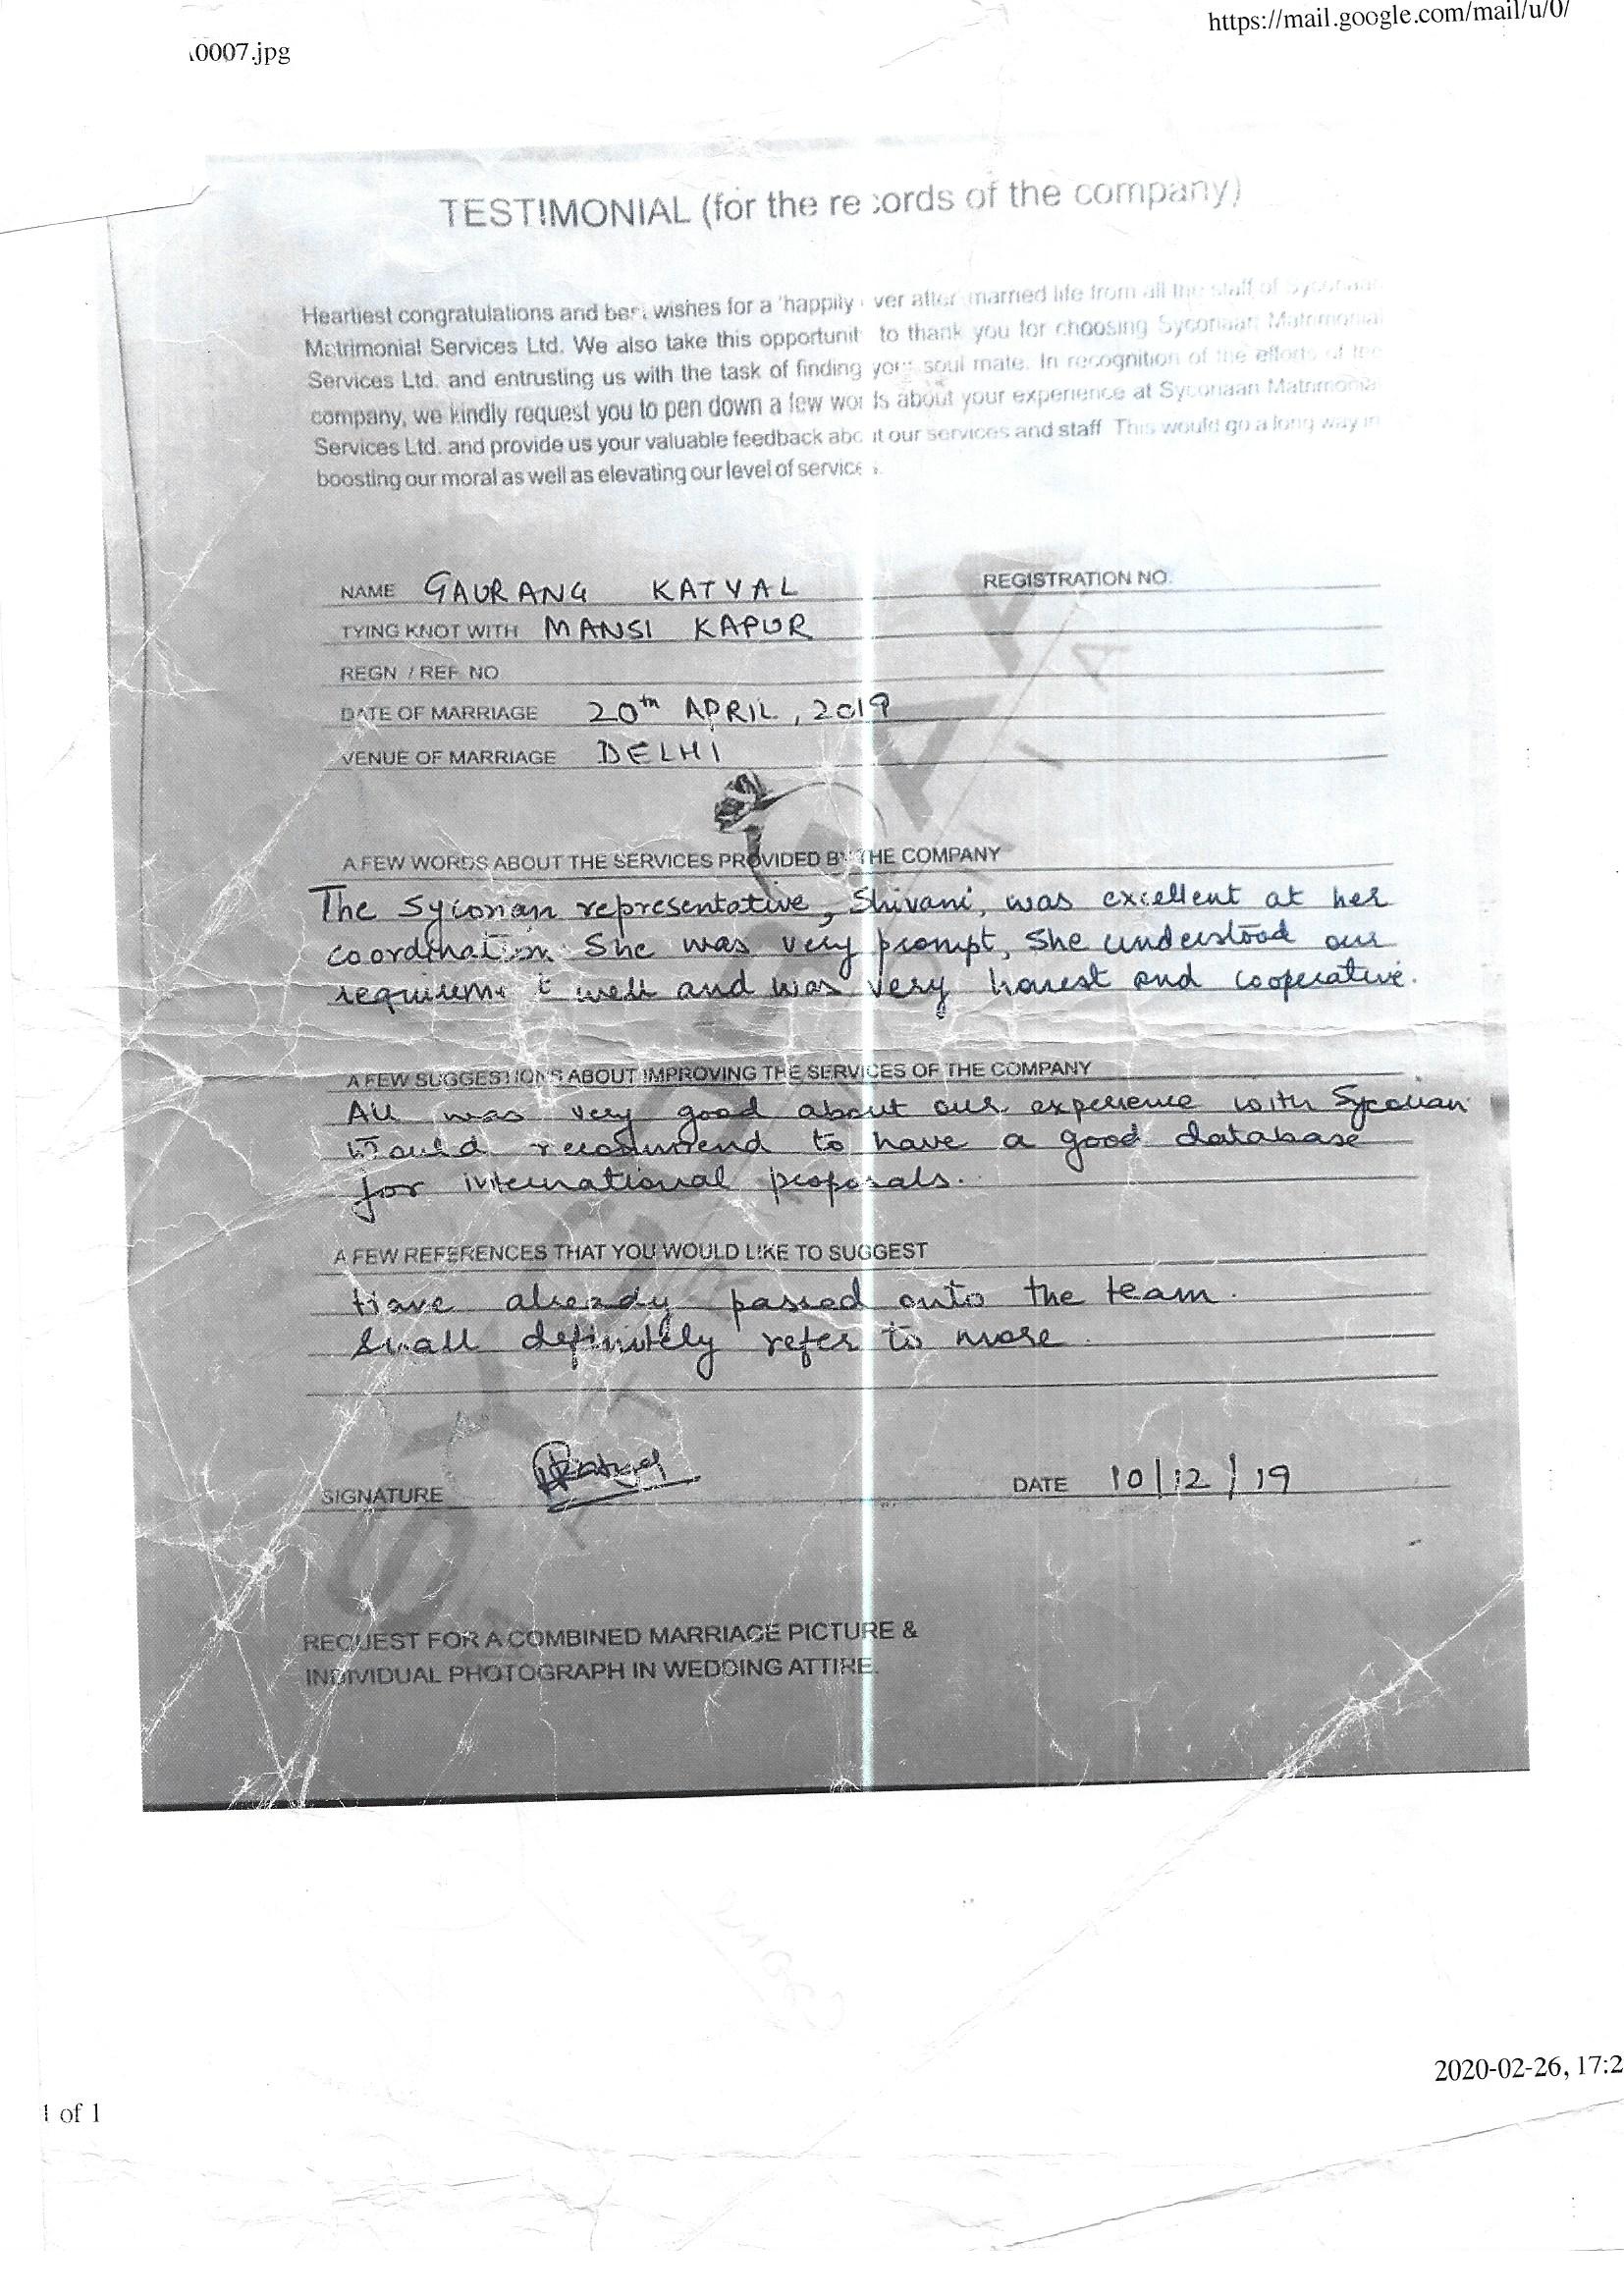 https://mail.google.com/mail/u/0/
0007.jpg
TESTIMONIAL (for the records of the company)
Heartiest congratulations and best wishes for a 'happily ever after married life from all the staff of Syconaan
Matrimonial Services Ltd. We also take this opportunity to thank you for choosing Syconaan Matrimonial
Services Ltd. and entrusting us with the task of finding your soul mate. In recognition of the efforts of the
company, we kindly request you to pen down a few words about your experience at Syconaan Matrimonial
Services Ltd. and provide us your valuable feedback about our services and staff This would go a long way in
boosting our moral as well as elevating our level of services.
NAME GAURANG KATYAL REGISTRATION NO.
TYING KNOT WITH MANSI KAPUR
REGN / REF NO
DATE OF MARRIAGE 20th APRIL, 2019
VENUE OF MARRIAGE DELHI
A FEW WORDS ABOUT THE SERVICES PROVIDED BY THE COMPANY
The Syconian representative, Shivani, was excellent at her
coordination. She was very prompt, She understood our
requirement well and was very honest and cooperative.
A FEW SUGGESTIONS ABOUT IMPROVING THE SERVICES OF THE COMPANY
All was very good about our experience with Syconian
Would recommend to have a good database
for international proposals.
A FEW REFERENCES THAT YOU WOULD LIKE TO SUGGEST
Have already passed onto the team.
Shall definitely refer to more.
SIGNATURE Katyal DATE 10/12/19
REQUEST FOR A COMBINED MARRIAGE PICTURE &
INDIVIDUAL PHOTOGRAPH IN WEDDING ATTIRE.
2020-02-26, 17:2
1 of 1